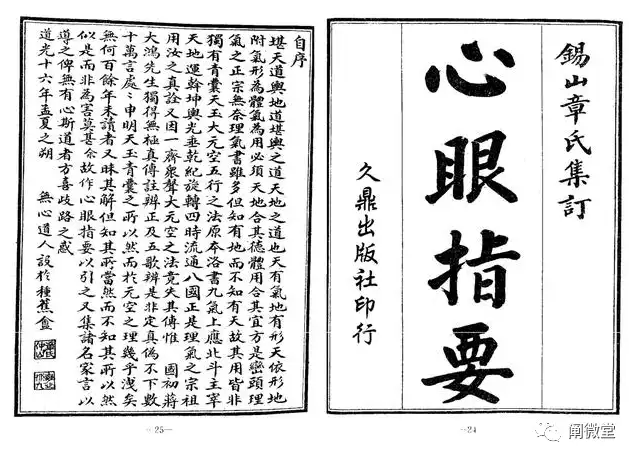 錫山章氏集訂
心眼指要
久鼎出版社印行
—24—
自序
堪天道輿地道堪輿之道天地之道也天有氣地有形天依形地
附氣形為體氣為用必須天地合其德體用合其宜方是巒頭理
氣之正宗無奈理氣書雖多但知有地而不知有天故其用皆非
獨有青囊天玉大元空五行之法原本洛書九氣上應北斗主宰
天地運幹坤輿光垂乾紀旋轉四時流通八國正是理氣之宗祖
用汝之真詮又因一齊眾聲大元空之法竟失其傳惟　國初蔣
大鴻先生獨得無極真傳註辨正及五歌辨是非定真偽不下數
十萬言處處申明天玉青囊之所以然而於元空之理幾乎洩矣
無何百餘年來讀者又昧其解但知其所當然而不知其所以然
似是而非為害莫甚余故作心眼指要以引之又集諸名家言以
導之俾無有心斯道者方喜歧路之惑
道光十六年孟夏之朔　無心道人設於種蕉盦
—25—
阐微堂